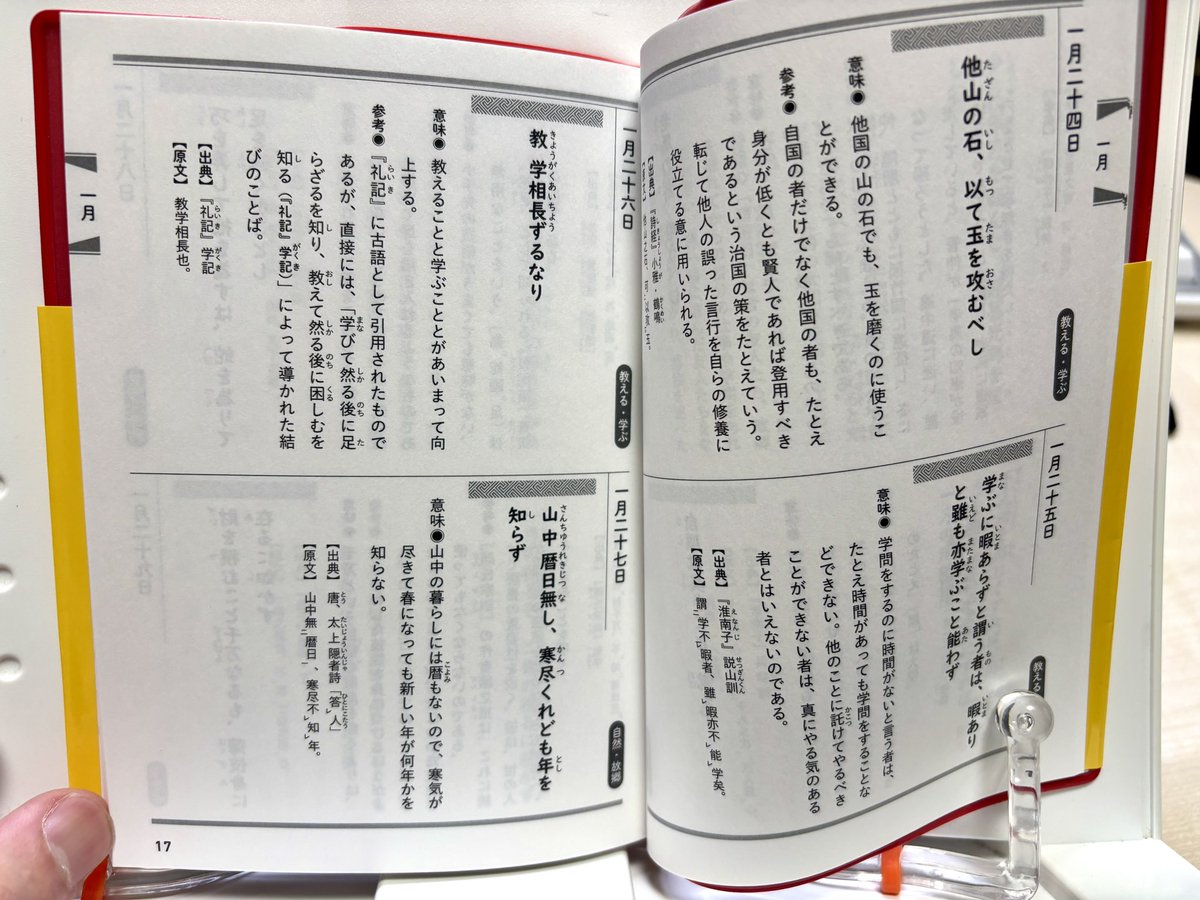 一月
一月二十四日
教える・学ぶ
他山の石、以て玉を攻むべし
意味● 他国の山の石でも、玉を磨くのに使うこ
とができる。
参考● 自国の者だけでなく他国の者も、たとえ
身分が低くとも賢人であれば登用すべき
であるという治国の策をたとえていう。
転じて他人の誤った言行を自らの修養に
役立てる意に用いられる。
【出典】『詩経』小雅・鶴鳴
一月二十五日
教える
学ぶに暇あらずと謂う者は、暇あり
と雖も亦学ぶこと能わず
意味● 学問をするのに時間がないと言う者は、
たとえ時間があっても学問をすることな
どできない。他のことに託けてやるべき
ことができない者は、真にやる気のある
者とはいえないのである。
【出典】『淮南子』説山訓
【原文】謂㆓学不㆒㆑暇者、雖㆑暇亦不㆑能㆑学矣。
一月二十六日
教える・学ぶ
教学相長ずるなり
意味● 教えることと学ぶこととがあいまって向
上する。
参考● 『礼記』に古語として引用されたもので
あるが、直接には、「学びて然る後に足
らざるを知り、教えて然る後に困しむを
知る（『礼記』学記）」によって導かれた結
びのことば。
【出典】『礼記』学記
【原文】教学相長也。
一月二十七日
自然・故郷
山中暦日無し、寒尽くれども年を
知らず
意味● 山中の暮らしには暦もないので、寒気が
尽きて春になっても新しい年が何年かを
知らない。
【出典】唐、太上隠者詩「答㆑人」
【原文】山中無㆓暦日㆒、寒尽不㆑知㆑年。
一月
17